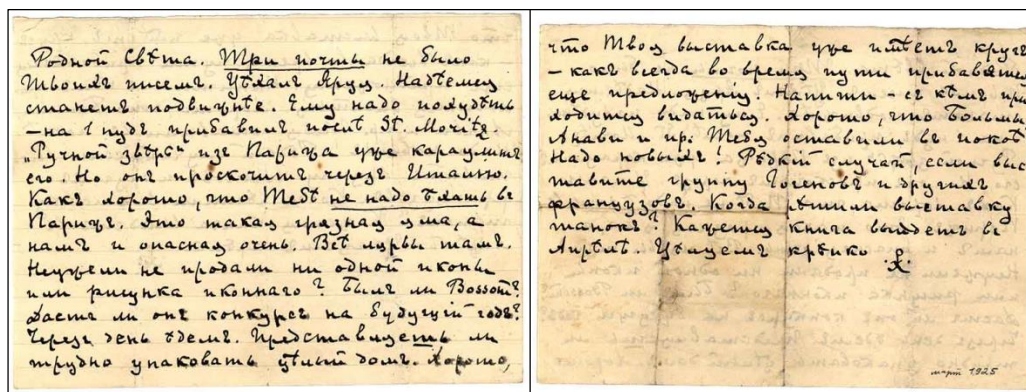 Родной Свѣта. Три почты не было
Твоихъ писемъ. Уѣхалъ Яруя. Надѣемся
станетъ подвижнѣе. Ему надо похудѣть
– на 1 пудъ прибавилъ послѣ St. Moritz.
"Ручной звѣрь" изъ Парижа уже караулитъ
его. Но онъ проскочитъ черезъ Италію.
Какъ хорошо, что Тебѣ не надо ѣхать въ
Парижъ. Это такая грязная яма, а
намъ и опасная очень. Всѣ лярвы тамъ.
Неужели не продали ни одной иконы
или рисунка иконнаго? Былъ ли Bossom?
Дастъ ли онъ конкурсъ на будущій годъ?
Черезъ день ѣдемъ. Представляешь ли
трудно упаковать цѣлый домъ. Хорошо,
что Твоя выставка уже имѣетъ кругъ
– какъ всегда во время пути прибавятся
еще предложенія. Напиши – съ кѣмъ при
ходится видаться. Хорошо, что Больмъ
Анави и пр. Тебя оставили въ покоѣ
Надо новыхъ! Рѣдкій случай, если выс
тавите группу Гогеновъ и другихъ
французовъ. Когда рѣшили выставку
танокъ? Кажется книга выйдетъ въ
Апрѣлѣ. Цѣлуемъ крѣпко
март 1925